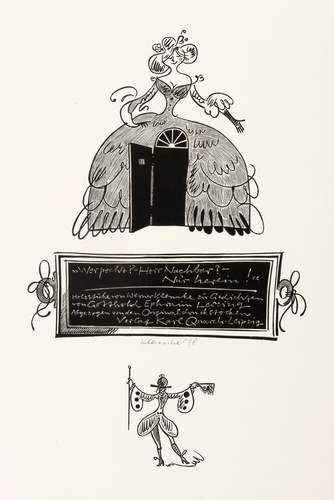 »Wer pocht?-Herr Nachbar?-
Nur herein!«
Holzstiche von Werner Klemke zu Gedichten
von Gotthold Ephraim Lessing
Abgezogen von den Originaldruckstöcken
Verlag Karl Quarch-Leipzig